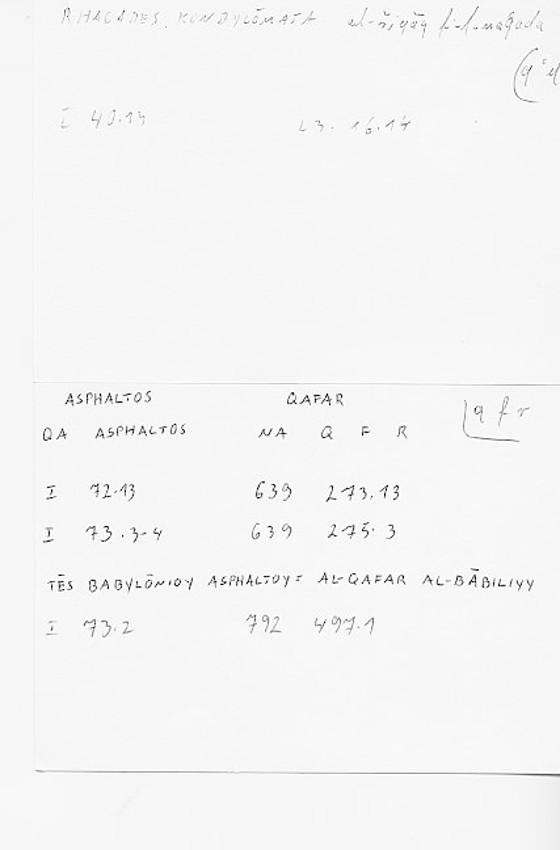 RHAGADES, KONDYLŌMATA al-šiqāq fi-l-maqʿada
(qʿd
I 40.13 L3. 16.14
ASPHALTOS QAFAR q f r
QA ASPHALTOS NA Q F R
I 72.13 639 273.13
I 73.3-4 639 275.3
TĒS BABYLŌNIOY ASPHALTOY: AL-QAFAR AL-BĀBILIYY
I 73.2 792 497.1